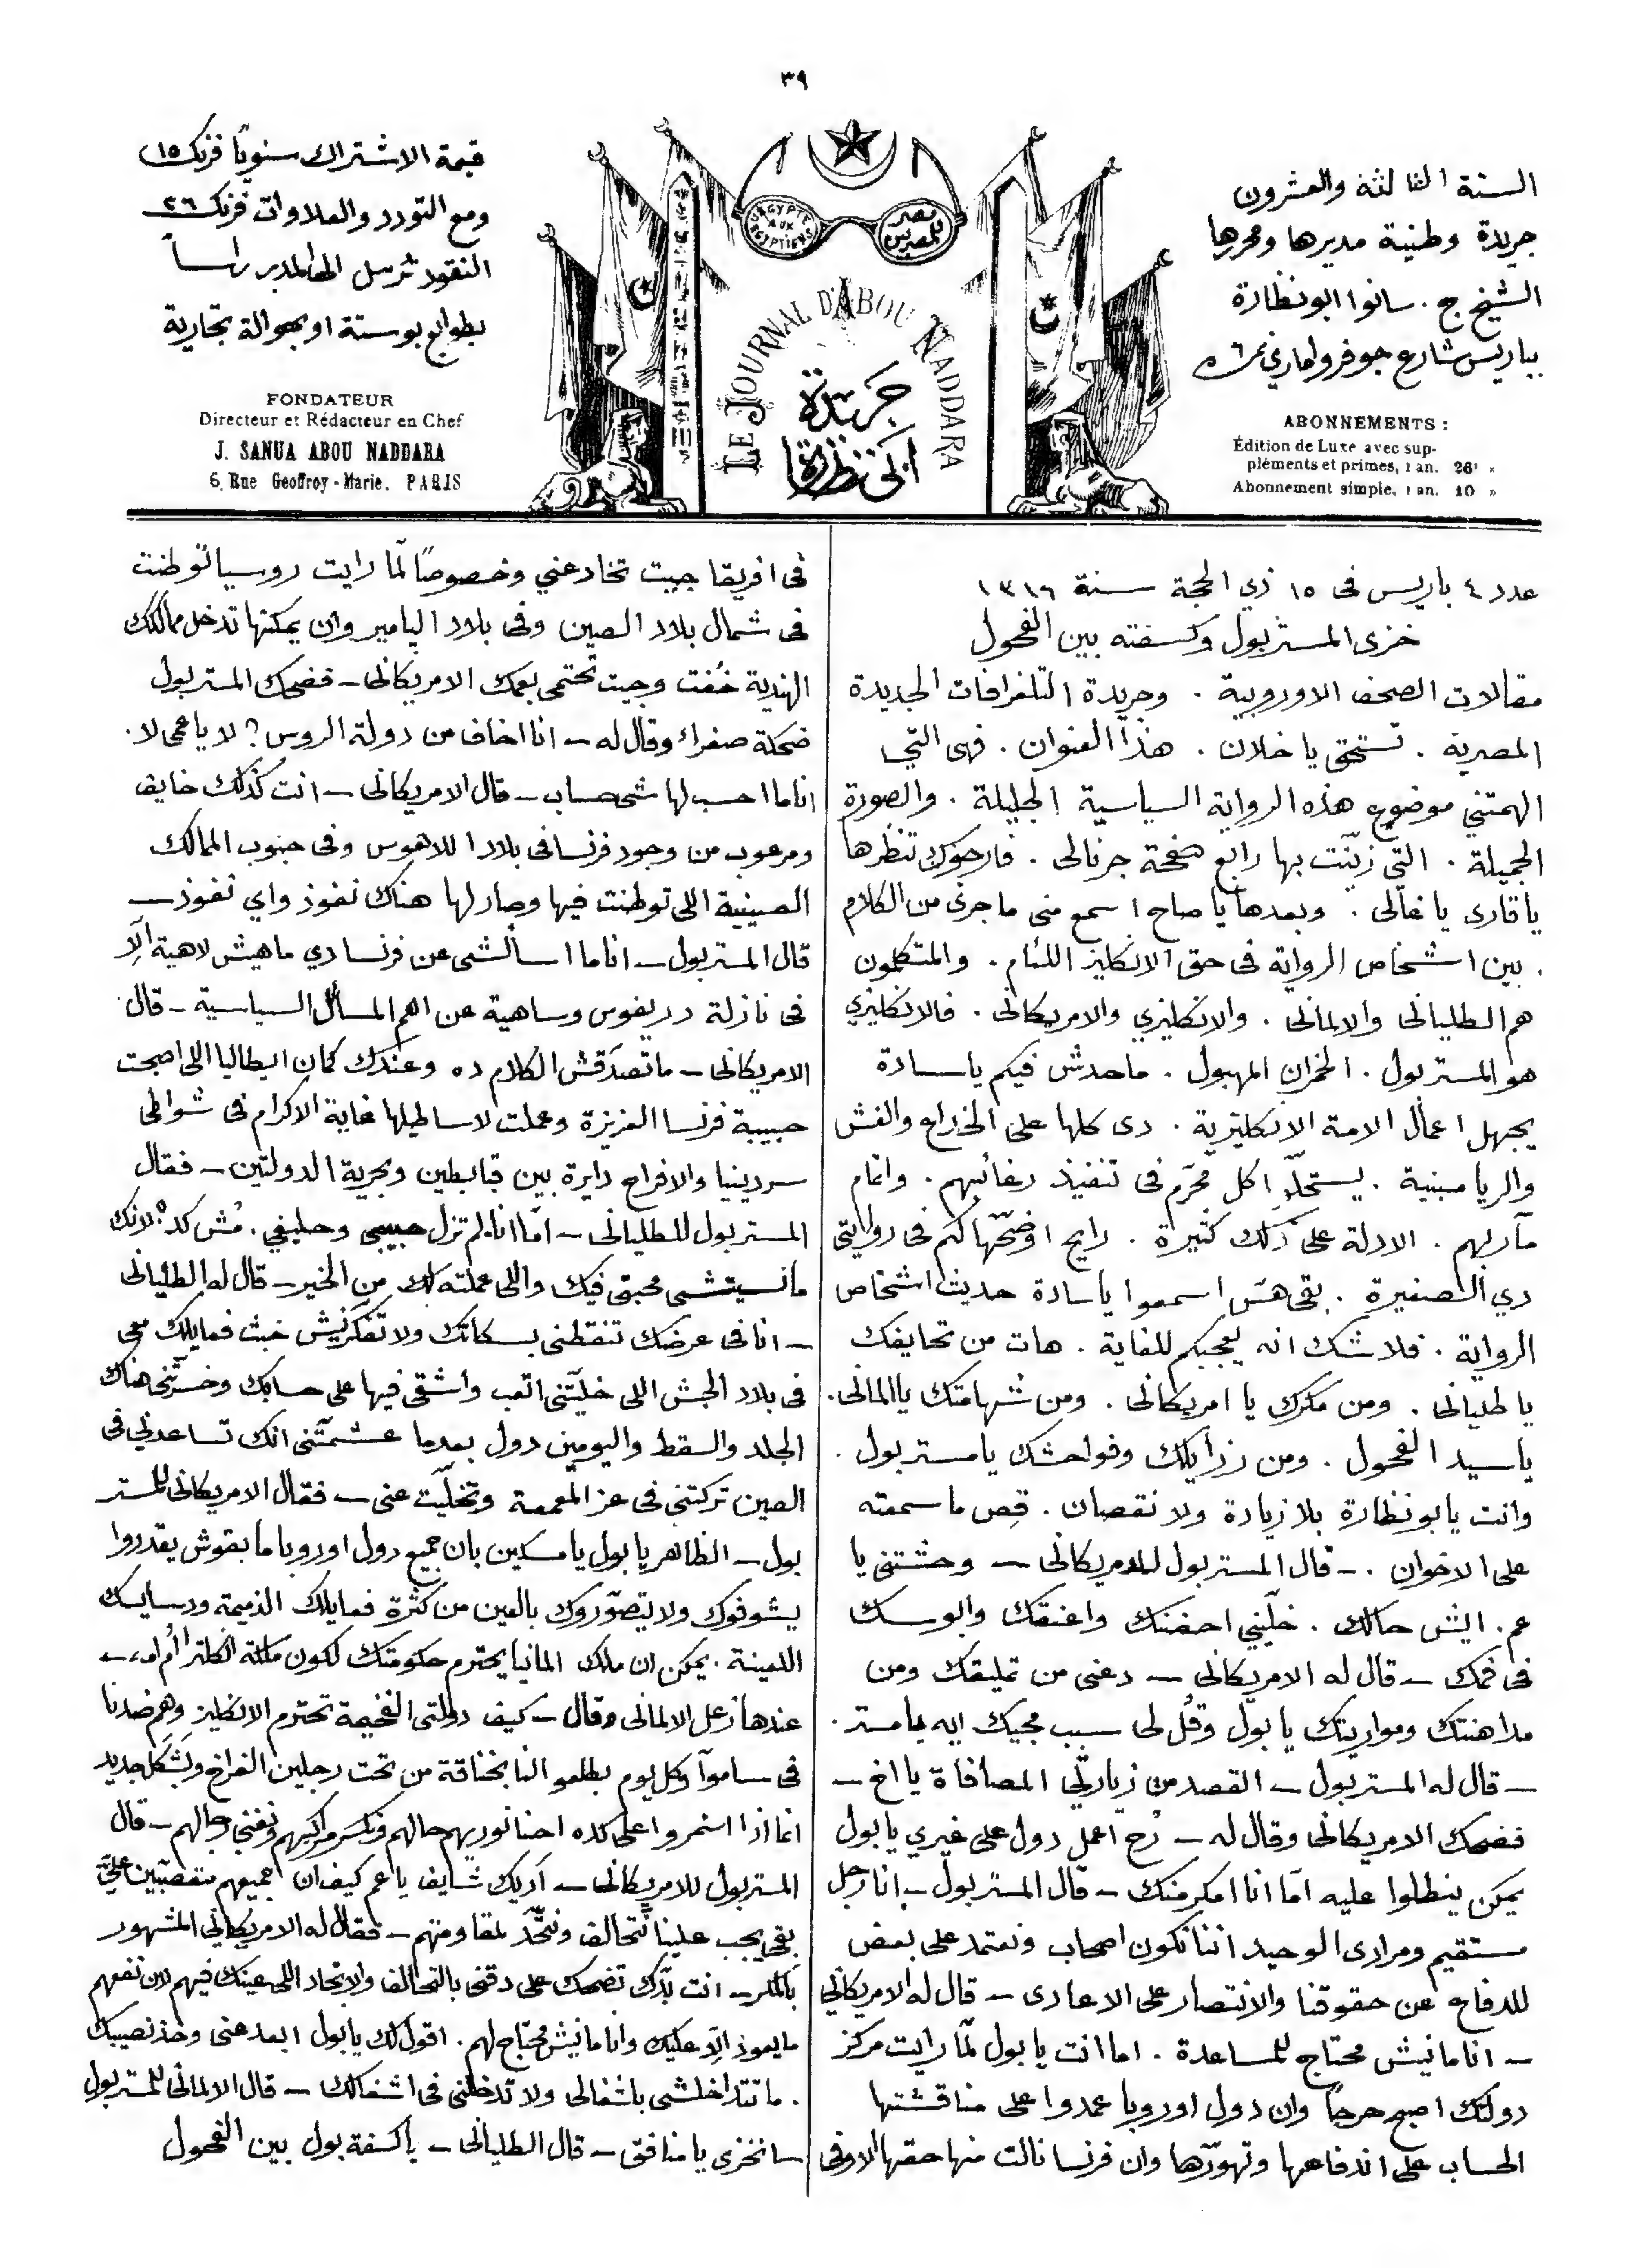 ٣٩
السنة الثالثة والعشرون
جريدة وطنية مديرها ومحررها
الشيخ ج. سانوا ابونظارة
بباريس شارع جوفروا ماري نمرة ٦
ABONNEMENTS :
Édition de Luxe avec sup-
pléments et primes, 1 an. 26 »
Abonnement simple, 1 an. 10 »
مصر للمصريين
L'ÉGYPTE AUX ÉGYPTIENS
LE JOURNAL D'ABOU NADDARA
جريدة
ابي نظارة
قيمة الاشتراك سنويًا فرنك ١٥
ومع التورد والعلاوات فرنك ٢٦
النقود ترسل الى المدير راساً
بطوابع بوستة او بحوالة تجارية
FONDATEUR
Directeur et Rédacteur en Chef
J. SANUA ABOU NADDARA
6, Rue Geoffroy-Marie. PARIS
عدد ٤ باريس فى ١٥ ذي الحجة سنة ١٣١٦
خزى المستر بول وكسفته بين الفحول
مقالات الصحف الاوروبية . وجريدة التلغرافات الجديدة
المصرية . تستحق يا خلان . هذا العنوان . فهى التي
الهمتني موضوع هذه الرواية السياسية الجليلة . والصورة
الجميلة . التي زينّت بها رابع صفحة جرنالى . فارجوك تنظرها
يا قارى يا غالى . وبعدها يا صاح اسمع منى ما جرى من الكلام
. بين اشخاص الرواية فى حق الانكليز اللئام . والمتكلمون
هم الطليانى والالمانى . والانكليزي والامريكانى . فالانكليزي
هو المستر بول . الخمران المهبول . ماحدش فيكم يا سادة
يجهل اعمال الامة الانكليزية . دى كلها على الخداع والغش
والريا مبنية . يستحلّوا كل محرّم فى تنفيذ رغائبهم . واتمام
مآربهم . الادلة على ذلك كثيرة . رايح اوضّحها لكم فى روايتى
دي الصغيرة . بقى هسّ اسمعوا يا سادة حديث اشخاص
الرواية . فلا شك انه يعجبكم للغاية . هات من تحايفك
يا طليانى . ومن مكرك يا امريكانى . ومن شهامتك يا المانى .
يا سيد الفحول . ومن رزايلك وفواحشك يا مستر بول .
وانت يا بو نظارة بلا زيادة ولا نقصان . قص ما سمعته
على الاخوان . – قال المستر بول للامريكانى – وحشتنى يا
عم . ايش حالك . خلّيني احضنك واعنقك وابوسك
فى فمك – قال له الامريكانى – دعنى من تمليقك ومن
مداهنتك ومواربتك يا بول وقُل لى سبب مجيك ايه يا مستر .
– قال له المستر بول – القصد من زيارتي المصافاة يا اخ –
فضحك الامريكانى وقال له – رُح اعمل دول على غيري يا بول
يمكن ينطلوا عليه امّا انا امكر منك – قال المستر بول – انا رجل
مستقيم ومرادى الوحيد اننا نكون اصحاب ونعتمد على بعض
للدفاع عن حقوقنا والانتصار على الاعادى – قال له الامريكاني
– انا مانيش محتاج للمساعدة . اما انت يا بول لمّا رايت مركز
دولتك اصبح حرجًا وان دول اوروبا عمدوا على مناقشتها
الحساب على اندفاعها وتهوّرها وان فرنسا نالت منها حقها الاوفى
فى افريقا جيت تخادعني وخصوصًا لمّا رايت روسيا توطنت
فى شمال بلاد الصين وفى بلاد اليامير وان يمكنها تدخل ممالكك
الهندية خُفت وجيت تحتمى بعمك الامريكانى – فضحك المستر بول
ضحكة صفراء وقال له – انا اخاف من دولة الروس ؟ لا يا عمى لا .
انا ما احسب لها شى حساب – قال الامريكانى – انت كذلك خايف
ومرعوب من وجود فرنسا فى بلاد اللاهوس وفى جنوب الممالك
الصينية اللى توطنت فيها وصار لها هناك نفوذ واي نفوذ –
قال المستر بول – انا ما اسألشى عن فرنسا دي ماهيش لاهية الّا
فى نازلة دريفوس وساهية عن اهم المسائل السياسية – قال
الامريكانى – ما تصدّقش الكلام ده وعندك كمان ايطاليا اللى اصبحت
حبيبة فرنسا العزيزة وعملت لاساطيلها غاية الاكرام فى شواطى
سردينيا والافراح دايرة بين قبابطين وبحرية الدولتين – فقال
المستر بول للطليانى – امّا انا لم تزل حبيبى وحليفي . مُش كده لانك
مانسيتشى محبتى فيك واللى عملته لك من الخير – قال له الطليانى
– انا فى عرضك تنقطنى بسكاتك ولا تفكّرنيش خبث فعايلك معى
فى بلاد الحبش اللى خليّتنى اتعب واشقى فيها على حسابك وخسرّتنى هناك
الجلد والسقط واليومين دول بعدما عشمتّنى انك تساعدني فى
الصين تركتنى فى عز المعمعة وتخلّيت عنى – فقال الامريكانى للمستر
بول – الظاهر يا بول يا مسكين بان جميع دول اوروبا ما بقوش يقدروا
يشوفوك ولا يتصوّروك بالعين من كثرة فعايلك الذميمة ودسايسك
اللعينة . يمكن ان ملك المانيا يحترم حكومتك لكون ملكة انكلترا أم امه –
عندها زعل الالمانى وقال – كيف دولتى الفخيمة تحترم الانكليز وهم ضدنا
فى ساموآ وكل يوم يطلعوا لنا بخناقة من تحت رجلين الفراخ وبشكل جديد
انما اذا استمروا على كده احنا نوريهم حالهم ونكسر مراكبهم ونفنى رجالهم – قال
المستر بول للامريكانى – أديك شايف يا عم كيف ان جميعهم متعصّبين عليّ
بقى يجب علينا نتحالف ونتّحد لمقاومتهم – فقال له الامريكاني المشهور
بالمكر – انت بدّك تضحك على دقنى بالتحالف والاتحاد اللى عينك فيهم لان نفعهم
ما يعود الّا عليك وانا مانيش محتاج لهم . اقول لك يا بول ابعد عنى وخذ نصيبك
. ما تتداخلشى باشغالى ولا تدخلنى فى اشغالك – قال الالمانى للمستر بول
– انخزى يا منافق – قال الطليانى – يا كسفة بول بين الفحول